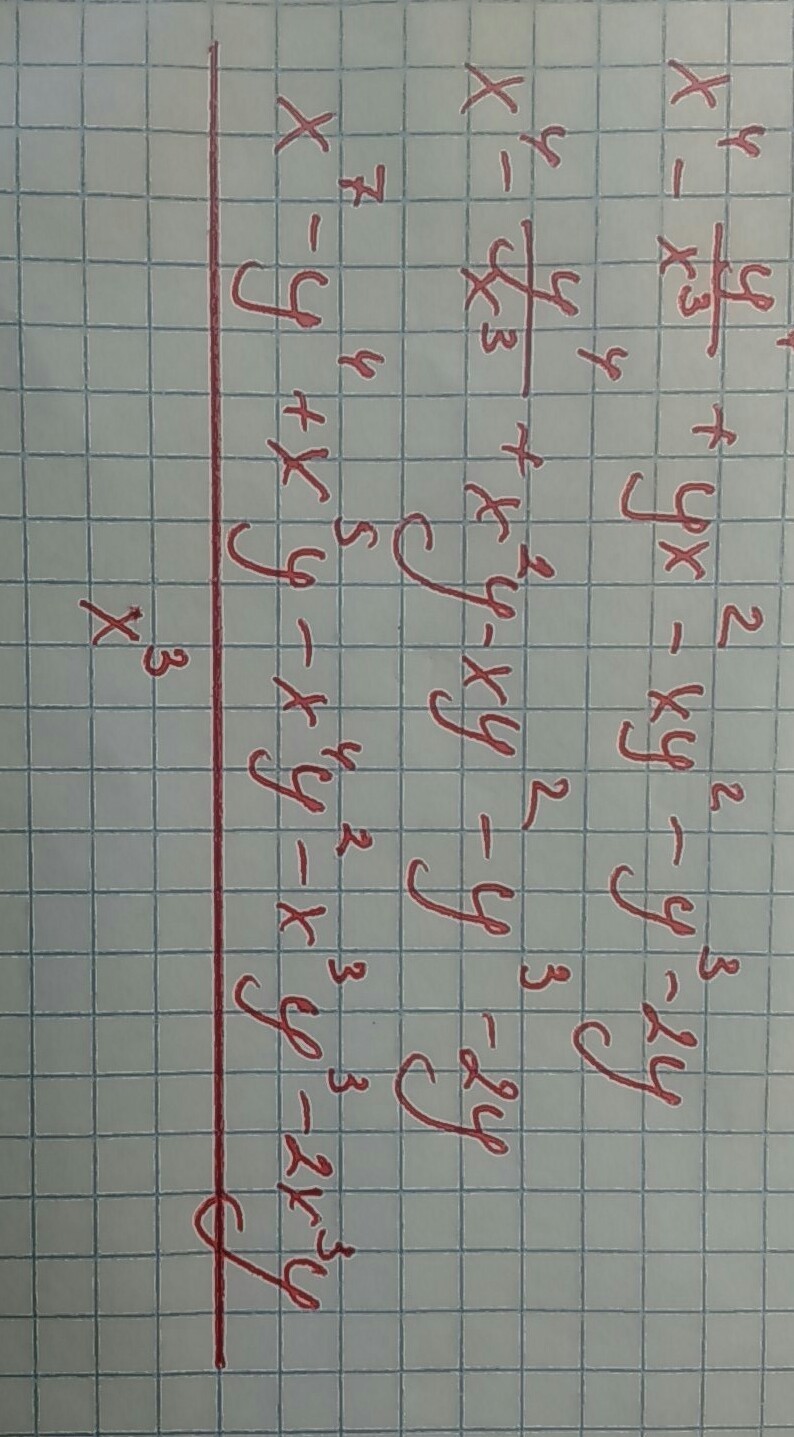 x⁴ - y⁴/x³ + yx² - xy² - y³ - 2y
x⁴ - y⁴/x³ + x²y - xy² - y³ - 2y
x⁷ - y⁴ + x⁵y - x⁴y² - x³y³ - 2x³y
x³